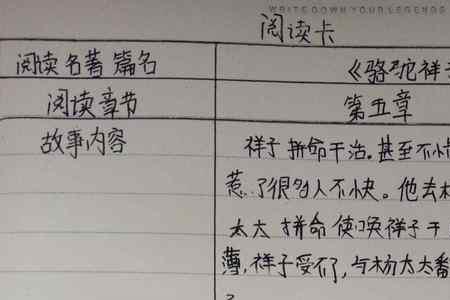 WRITE DOWN YOUR LEGENDS
阅读卡
阅读名著篇名 《骆驼祥子
阅读章节 第五章
故事内容 祥子拼命干活。甚至不惜
惹了很多人不快。他去杨
太太拼命使唤祥子干
薄,祥子受不了,与杨太太